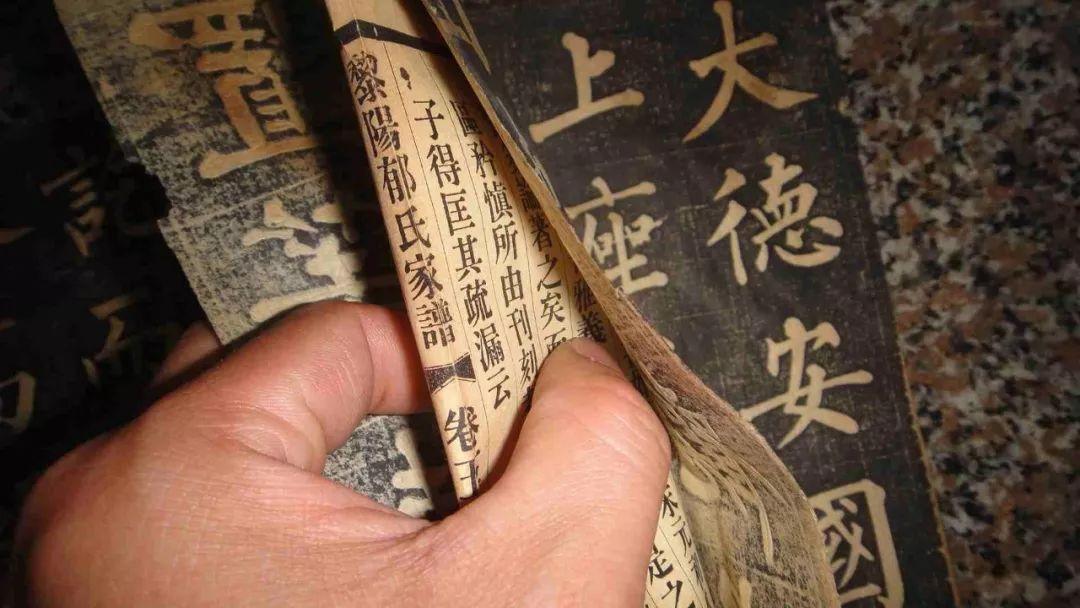 大德安國
上座
雅義
著之矣而
矜慎所由刊刻
子得匡其疏漏云
黎陽郁氏家譜 卷
置
記
而